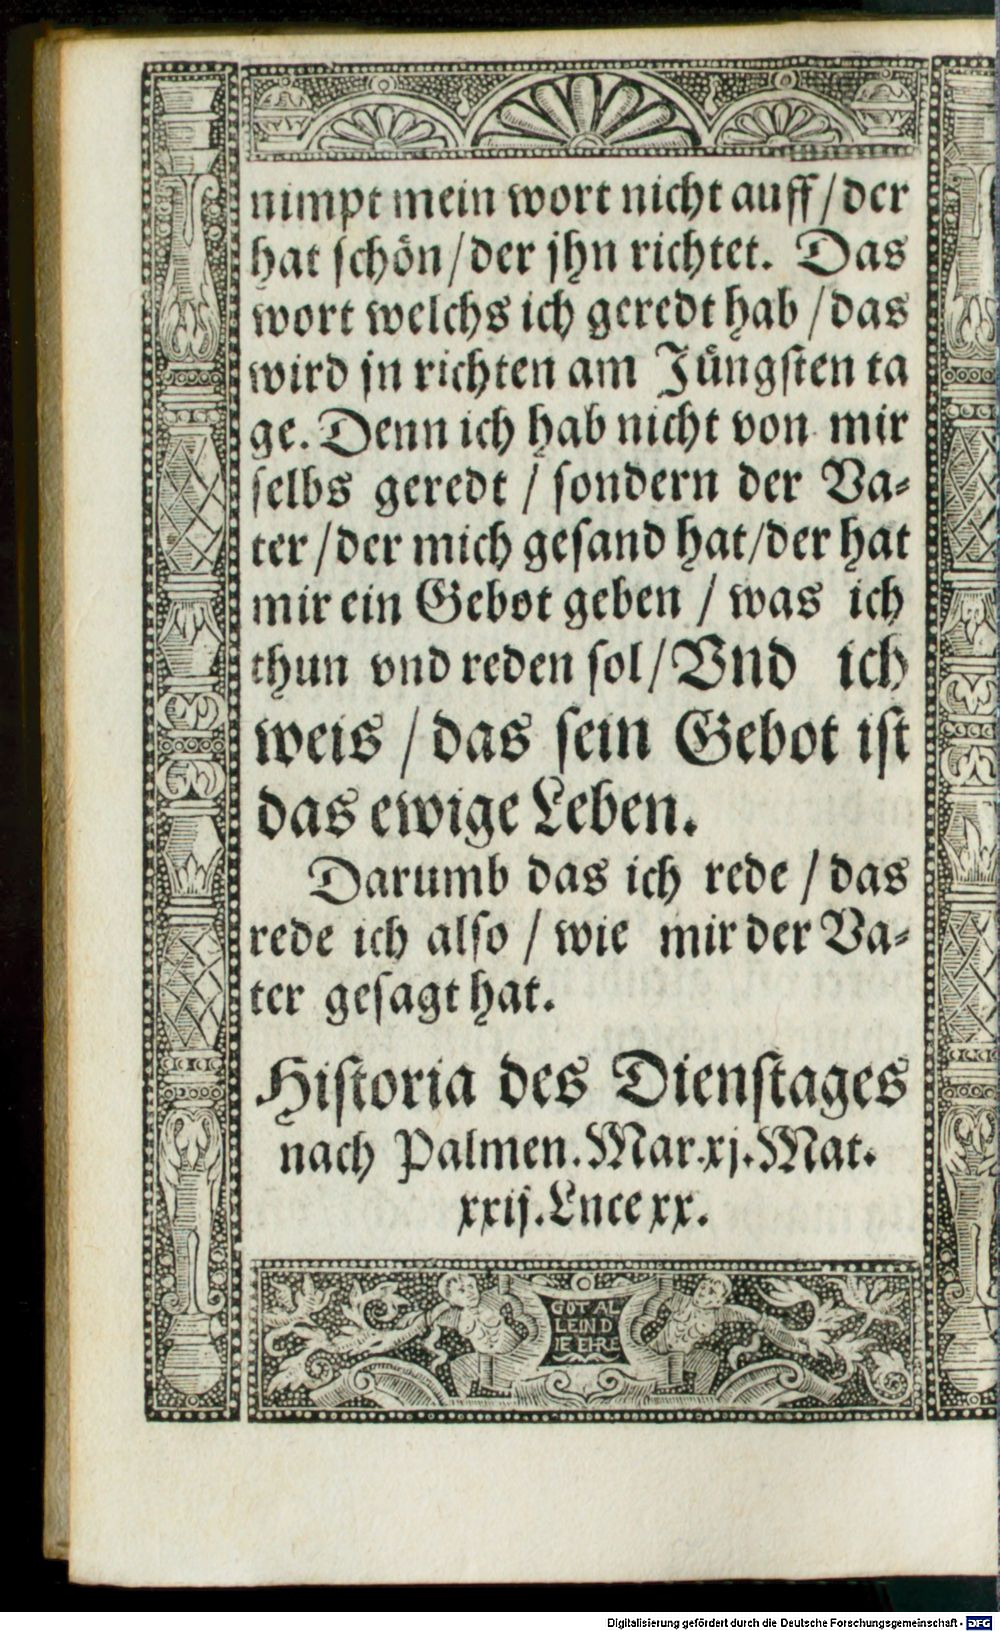 nimpt mein wort nicht auff / der
hat schön / der jhn richtet. Das
wort welchs ich geredt hab / das
wird jn richten am Jüngsten ta
ge. Denn ich hab nicht von mir
selbs geredt / sondern der Va-
ter / der mich gesand hat / der hat
mir ein Gebot geben / was ich
thun vnd reden sol / Vnd ich
weis / das sein Gebot ist
das ewige Leben.
Darumb das ich rede / das
rede ich also / wie mir der Va-
ter gesagt hat.
Historia des Dienstages
nach Palmen. Mar. xj. Mat.
xxij. Luce xx.
GOT AL
LEIN D
IE EHRE
Digitalisierung gefördert durch die Deutsche Forschungsgemeinschaft - DFG